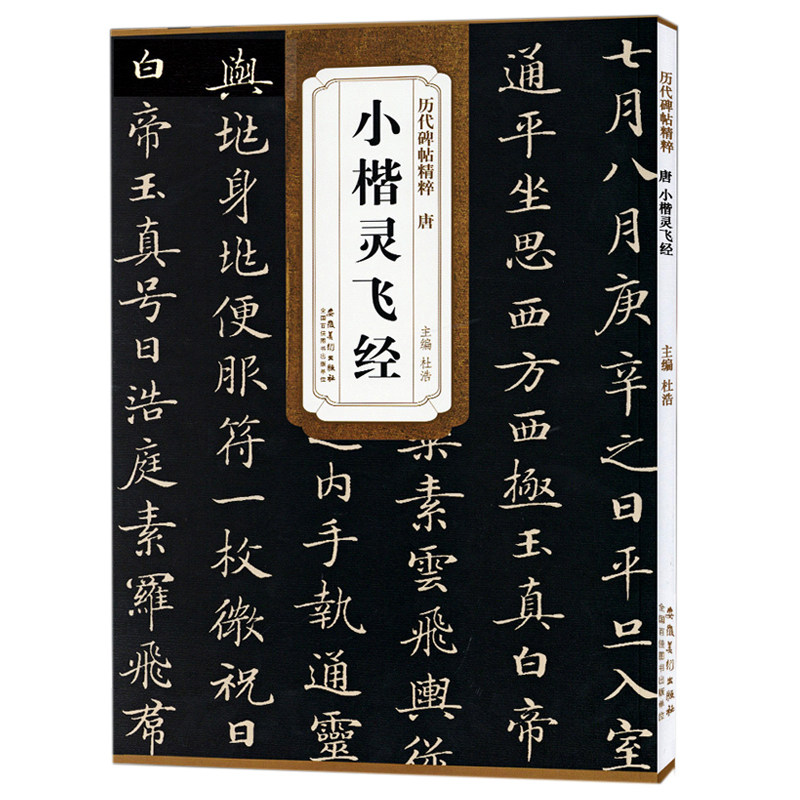 七月八月庚辛之日平旦入室
通平坐思西方西極玉真白帝
素雲飛輿從
内手執通靈
與兆身兆便服符一枚微祝曰
白帝玉真号曰浩庭素羅飛裙
历代碑帖精粹 唐
小楷灵飞经
主编 杜浩
安徽美术出版社
全国百佳图书出版单位
历代碑帖精粹 唐 小楷灵飞经
主编 杜浩
安徽美术出版社
全国百佳图书出版单位